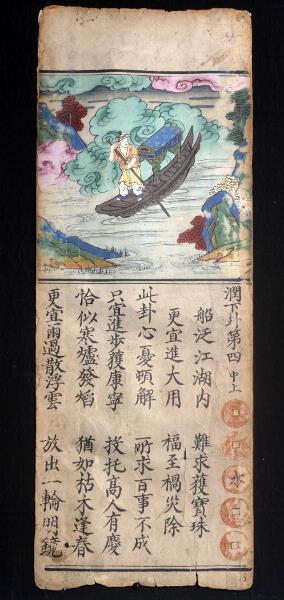 潤下卦第四 中上
水
船泛江湖内 難求獲寶珠
更宜進大用 福至禍災除
此卦心憂頓解 所求百事不成
只宜進步獲康寧 投托髙人有慶
恰似寒爐發焰 猶如枯木逢春
更宜雨過散浮雲 放出一輪明鏡